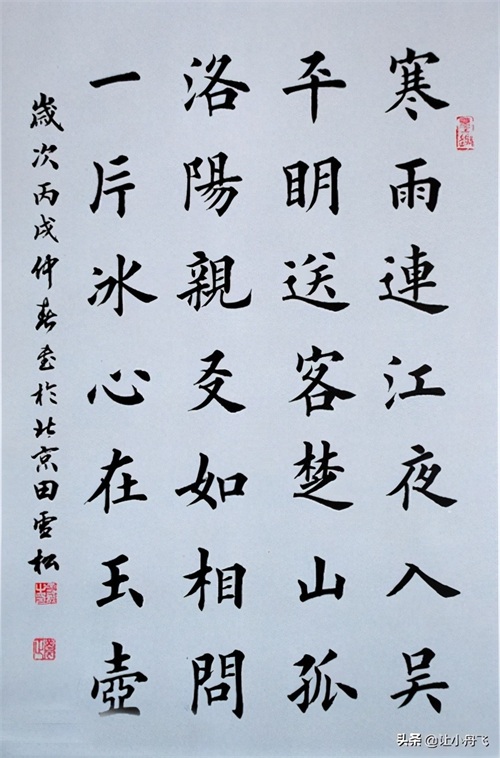 寒雨連江夜入吳
平明送客楚山孤
洛陽親友如相問
一片冰心在玉壺
歲次丙戌仲春書於北京田雪松
头条 @让小舟飞